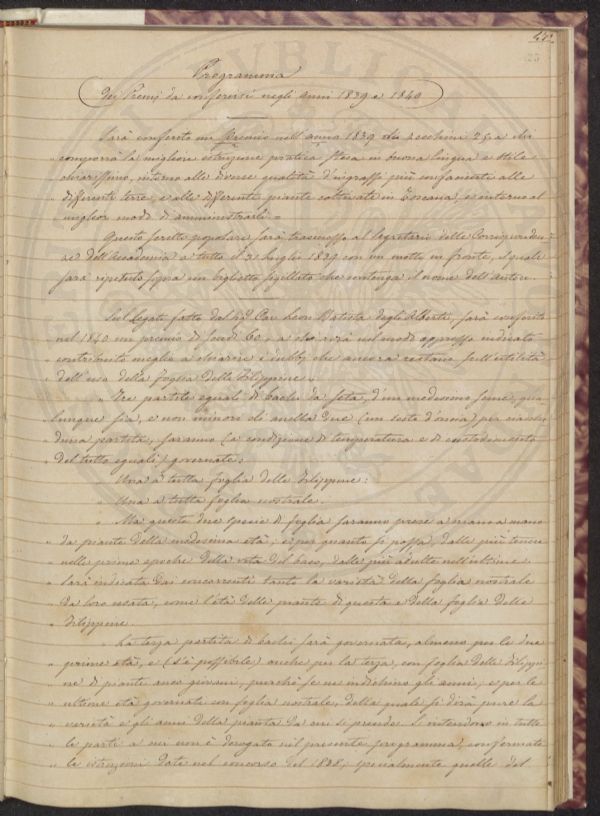 Programma
dei Premj da conferirsi negli anni 1839 e 1840
Sarà conferito un Premio nell'anno 1839 di zecchini 25, a chi
comporrà la migliore istruzione pratica, stesa in buona lingua e stile
chiarissimo, intorno alle diverse qualità d'ingrassi più confacienti alle
differenti terre, e alle differenti piante coltivate in Toscana, e intorno al
miglior modo di amministrarli =
Questo scritto popolare sarà trasmesso al Segretario delle Corrisponden-
ze dell'Accademia a tutto il 31 Luglio 1839 con un motto in fronte, il quale
sarà ripetuto sopra un biglietto sigillato che contenga il nome dell'autore.
Sul legato fatto dal Cav. Leon Batista degli Alberti, sarà conferito
nel 1840 un premio di scudi 60, a chi avrà nel modo appresso indicato
contribuito meglio a chiarire i dubbj che ancora restano sull'utilità
dell'uso della foglia delle Filippine.
" Tre partite eguali di bachi da seta, d'un medesimo seme, qua-
" lunque sia, e non minori di quella che (un sesto d'oncia) per ciasche-
" duna partita, saranno (a condizione di temperatura e di
" del tutto eguali) governate:
" Una a tutta foglia delle Filippine:
" Una a tutta foglia nostrale.
" Ma queste due specie di foglia saranno prese a mano a mano
" da piante della medesima età; e per quanto si possa, dalle più tenere
" nelle prime epoche della vita del baco, dalle più adulte nell'ultime.
" Sarà indicata dai concorrenti tanto la varietà della foglia nostrale
" da loro usata, come l'età delle piante di questa e della foglia delle
" Filippine.
" La terza partita di bachi sarà governata, almeno per le due
" prime età, e (s'è possibile) anche per la terza, con foglia delle Filippi-
" ne di piante anco giovani, purchè se ne indichino gli anni; e per le
" ultime età governate con foglia nostrale, della quale si dirà pure la
" varietà e gli anni della pianta da cui si prende. S'intendono in tutte
" le parti a cui non è derogato nel presente programma, confermate
" le istruzioni date nel concorso del 1838, specialmente quelle del